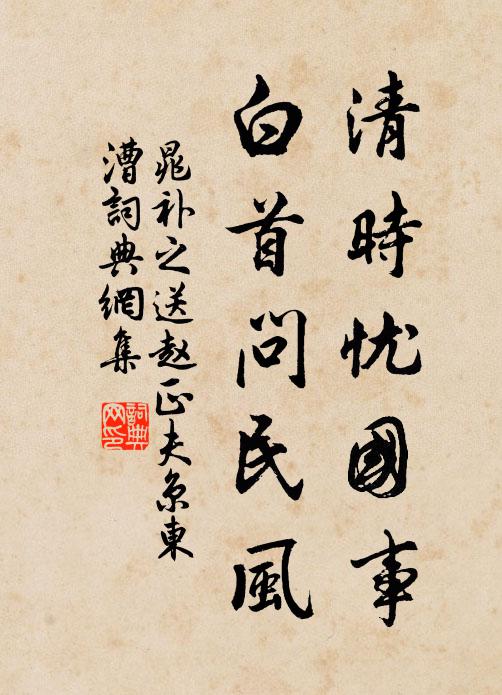 清時忧國事
白首問民風
晁补之送赵正夫京東
漕詞典網集
詞典
网印